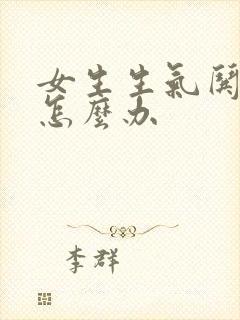 女生生氣鬧
怎麼办
李群